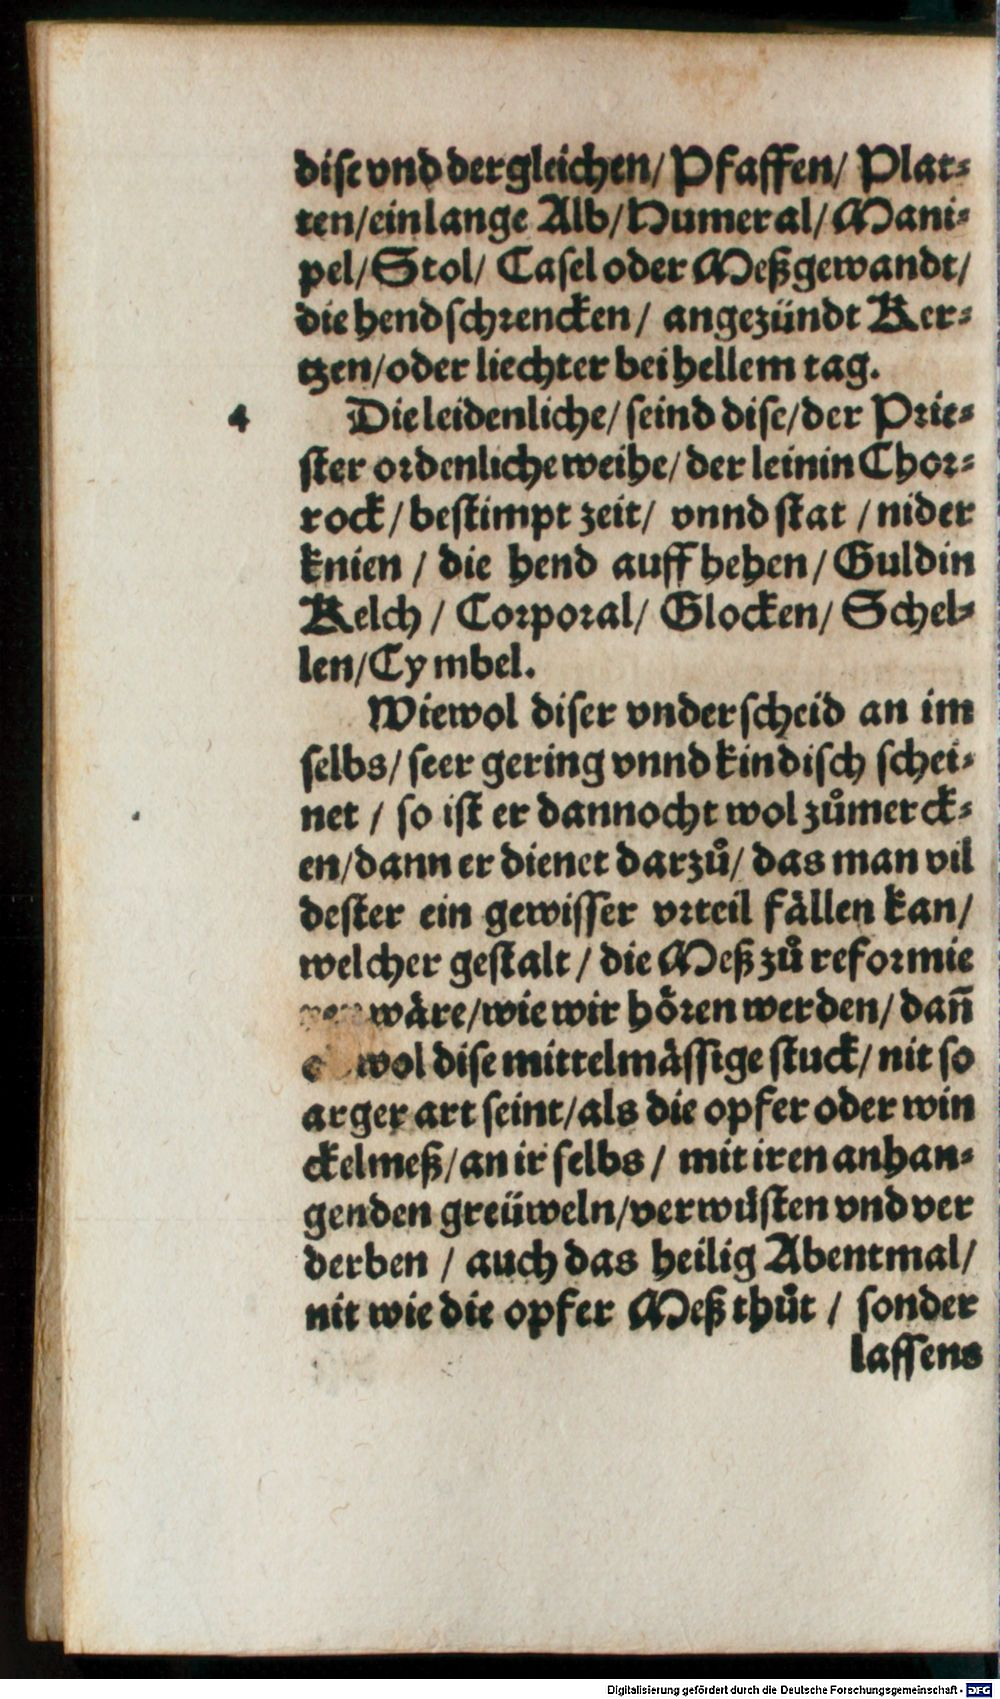 dise vnd der gleichen/ Pfaffen/ Plat⸗
ten/ ein lange Alb/ Humeral/ Mani⸗
pel/ Stol/ Casel oder Meßgewandt/
die hend schrencken/ angezündt Ker⸗
tzen/ oder liechter bei hellem tag.
4 Die leidenliche/ seind dise/ der Prie⸗
ster ordenliche weihe/ der leinin Chor⸗
rock/ bestimpt zeit/ vnnd stat / nider
knien / die hend auff heben/ Guldin
Kelch / Corporal/ Glocken/ Schel⸗
len/ Cymbel.
Wiewol diser vnderscheid an im
selbs/ seer gering vnnd kindisch schei⸗
net / so ist er dannocht wol zůmerck⸗
en/ dann er dienet darzů/ das man vil
dester ein gewisser vrteil fällen kan/
welcher gestalt / die Meß zů reformie
wäre/ wie wir hören werden/ dañ
wol dise mittelmässige stuck/ nit so
arger art seint/ als die opfer oder win
ckelmeß/ an ir selbs / mit iren anhan⸗
genden greüweln/ verwüsten vnd ver
derben / auch das heilig Abentmal/
nit wie die opfer Meß thůt / sonder
lassens
Digitalisierung gefördert durch die Deutsche Forschungsgemeinschaft - DFG